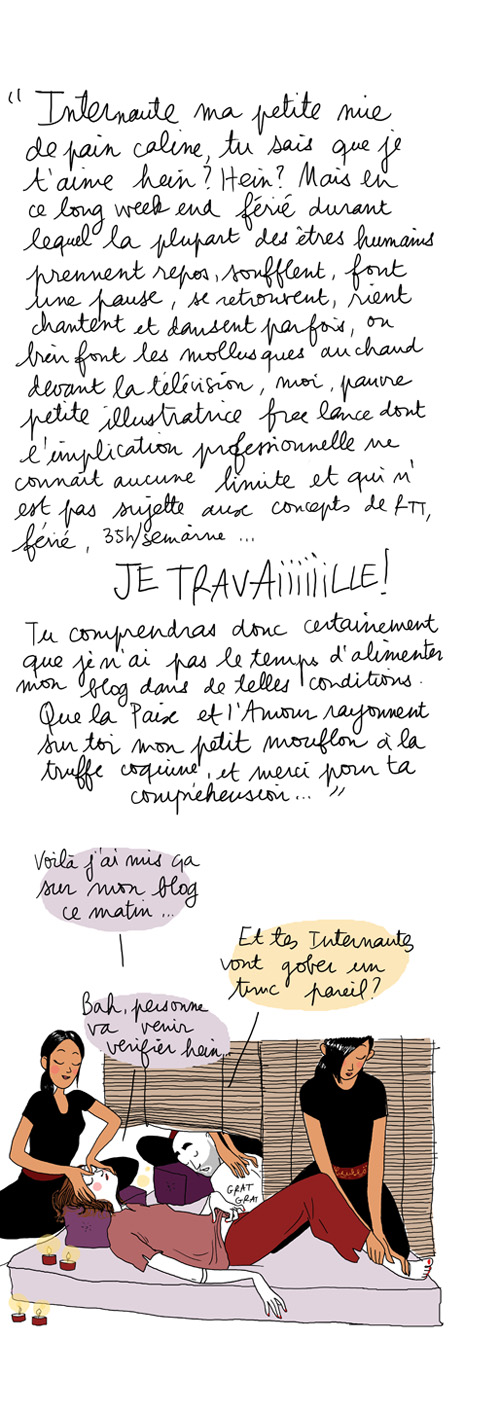 " Internaute ma petite mie
de pain caline, tu sais que je
t'aime hein ? Hein ? Mais en
ce long week end férié durant
lequel la plupart des êtres humains
prennent repos, soufflent, font
une pause, se retrouvent, rient
chantent et dansent parfois, ou
bien font les mollusques au chaud
devant la télévision, moi, pauvre
petite illustratrice free lance dont
l'implication professionnelle ne
connaît aucune limite et qui n'
est pas sujette aux concepts de RTT,
férié, 35h/semaine ...
JE TRAVAiiiiiiiLLE !
Tu comprendras donc certainement
que je n'ai pas le temps d'alimenter
mon blog dans de telles conditions.
Que la Paix et l'Amour rayonnent
sur toi mon petit mouflon à la
truffe coquine, et merci pour ta
compréhension... "
Voilà j'ai mis ça
sur mon blog
ce matin ...
Et tes Internautes
vont gober un
truc pareil ?
Bah, personne
va venir
vérifier hein...
GRAT
GRAT